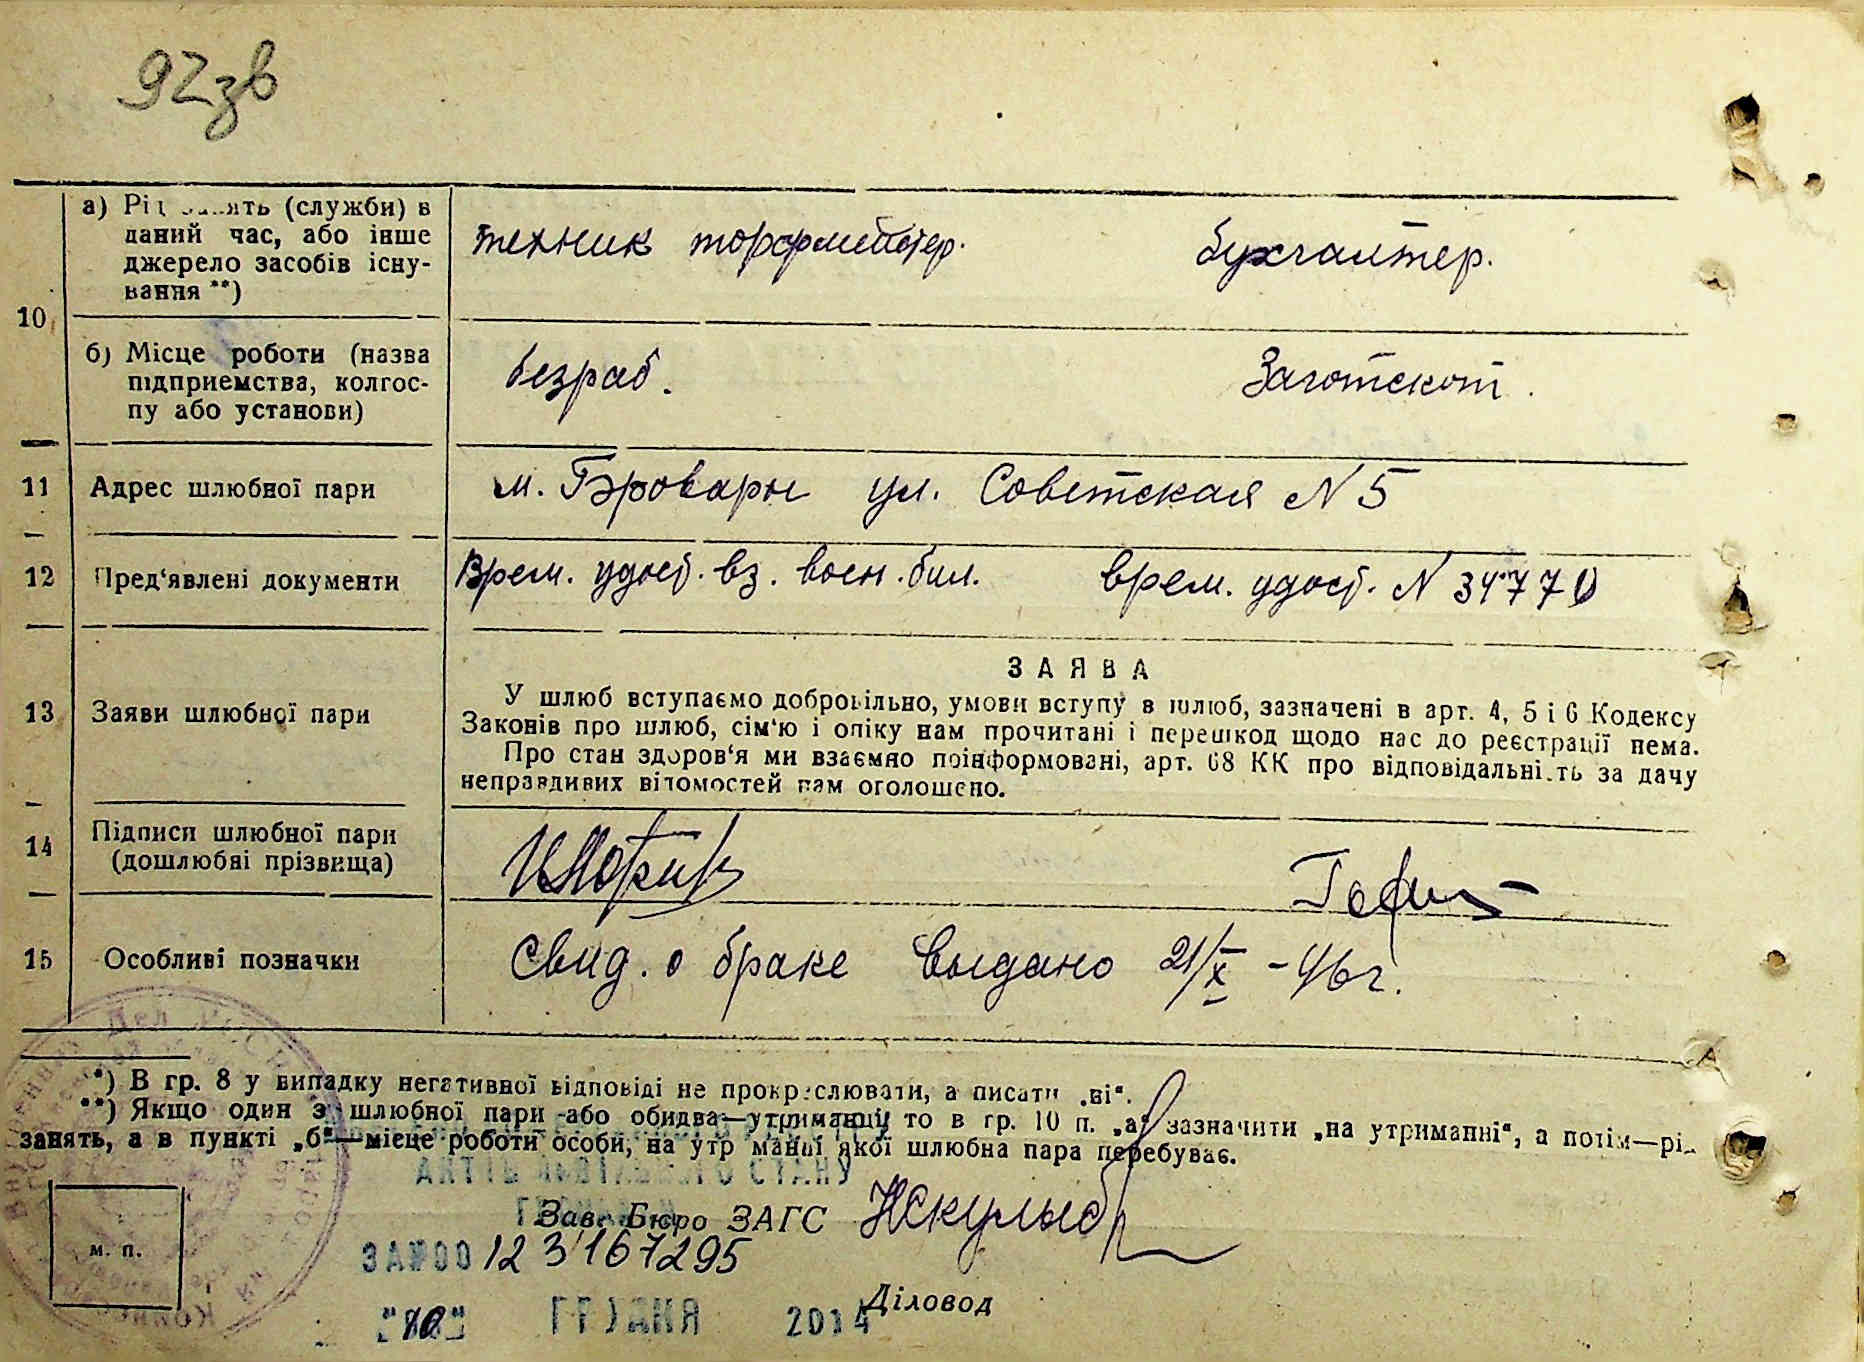 92зв
а) Рід занять (служби) в
даний час, або інше
джерело засобів існу-
вання **)
техник торфмейстер.
бухгалтер.
10
б) Місце роботи (назва
підприємства, колгос-
пу або установи)
безраб.
Заготскот.
11 Адрес шлюбної пари
м. Бровары ул. Советская N 5
12 Пред'явлені документи
Врем. удост. вз. воен. бил.
врем. удост. N 34770
13 Заяви шлюбної пари
ЗАЯВА
У шлюб вступаємо добровільно, умови вступу в шлюб, зазначені в арт. 4, 5 і 6 Кодексу
Законів про шлюб, сім'ю і опіку нам прочитані і перешкод щодо нас до реєстрації нема.
Про стан здоров'я ми взаємно поінформовані, арт. 68 КК про відповідальність за дачу
неправдивих відомостей нам оголошено.
14 Підписи шлюбної пари
(дошлюбні прізвища)
15 Особливі позначки
Свид. о браке выдано 21/X -46г.
*) В гр. 8 у випадку негативної відповіді не прокреслювати, а писати „ні“.
**) Якщо один з шлюбної пари або обидва—утриманці, то в гр. 10 п. „а“ зазначити „на утриманні“, а потім—рід
занять, а в пункті „б“—місце роботи особи, на утриманні якої шлюбна пара перебуває.
АКТІВ ЦИВІЛЬНОГО СТАНУ
Зав. Бюро ЗАГС
м. п.
ЗА №00123167295
Діловод
"10" ГРУДНЯ 2014